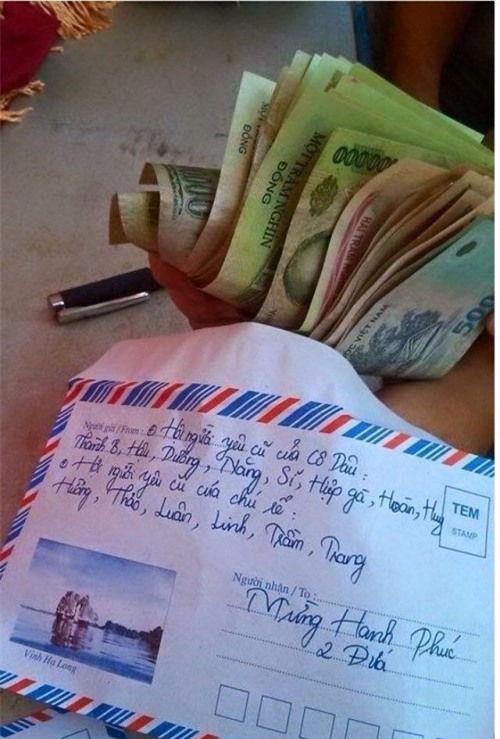 MỘT
ĐỒNG
MỘT TRĂM NGHÌN
ĐỒNG
000000
VIỆT NAM
500
Người gửi / From : Hội người yêu cũ của Cô Dâu :
Thành B, Hậu, Dưỡng, Năng, Sĩ, Hiệp gà, Hoàn, Huy
Hội người yêu cũ của chú rể :
Hương, Thảo, Luân, Linh, Trầm, Trang
TEM
STAMP
Người nhận / To :
Mừng Hạnh Phúc
2 Đứa
Vịnh Hạ Long